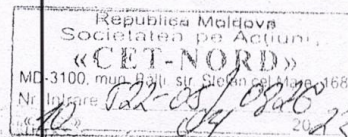 Republica Moldova
Societatea pe Acţiuni
«CET-NORD»
MD-3100, mun. Bălţi, str. Ştefan cel Mare, 168
Nr. Intrare
«10» 04 20